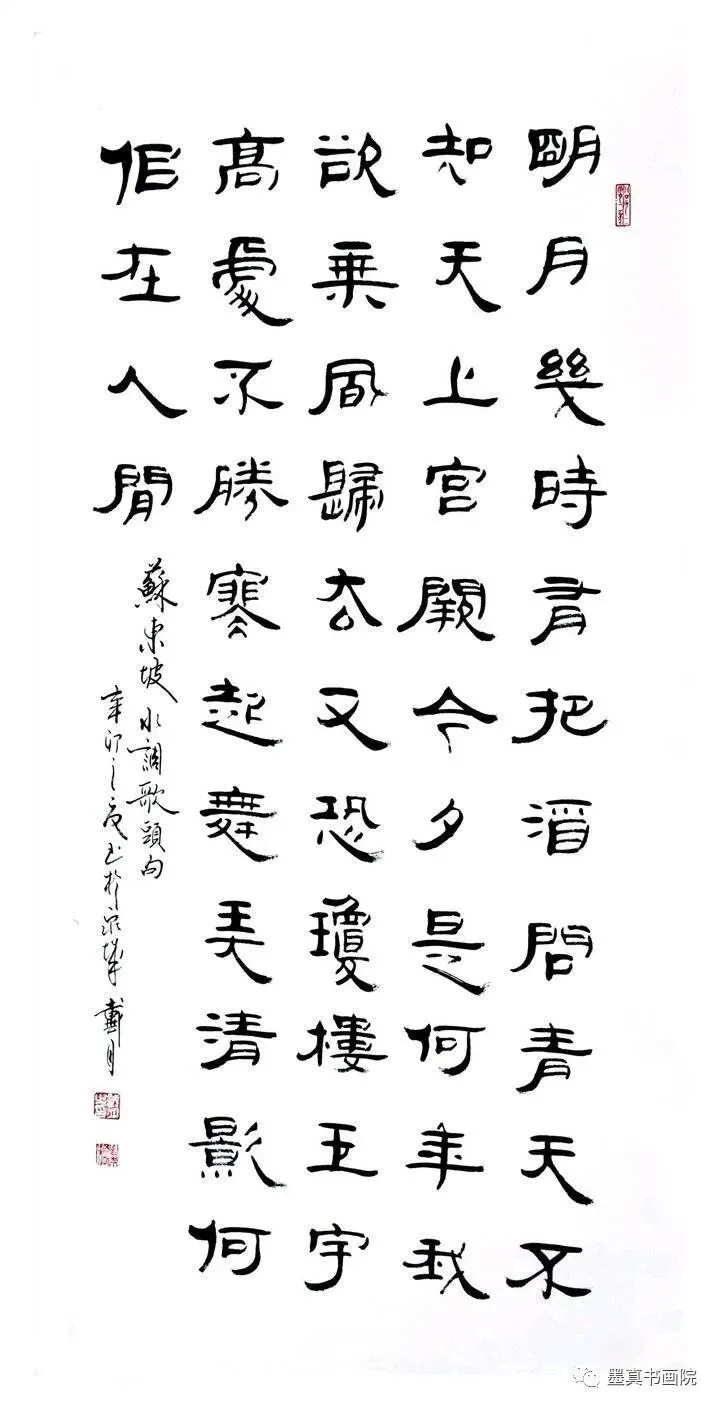 明月幾時有把酒問青天不
知天上宮闕今夕是何年我
欲乘風歸去又恐瓊樓玉宇
高處不勝寒起舞弄清影何
似在人間
蘇東坡水調歌頭句
辛卯之夏书於泉城戴月
墨真书画院